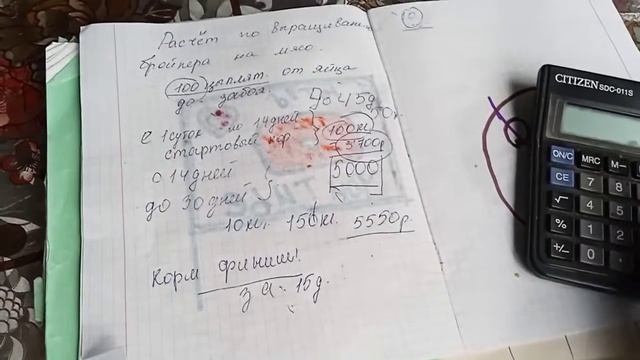 Расчёт по выращиван
бройлера на мясо.
100 цыплят от яйца
до забоя.
до 45д
50к.
с 1 суток по 14 дней
стартовый кор
100кг
3700р
5000
с 14 дней
до 30 дней
10кг. 150кг. 5550р.
Корм финиш!
за 15д.
10
CITIZEN SDC-011S
ON/C MRC M-
CE 7 8
√ 4 5
% 1 2
+/- 0